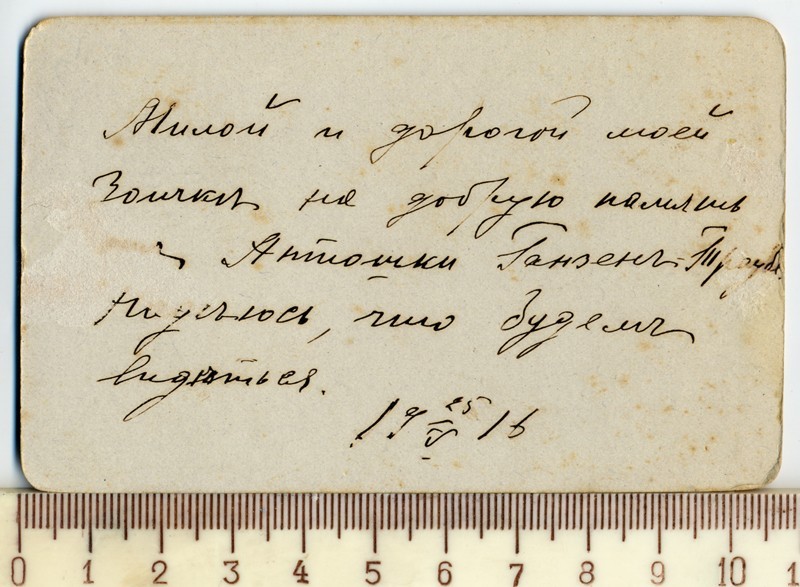 Милой и дорогой моей
Зоичкѣ на добрую память
Антошки Ганзенъ-
Надѣюсь, что будемъ
видѣться.
19 25/V 16
0 1 2 3 4 5 6 7 8 9 10 1